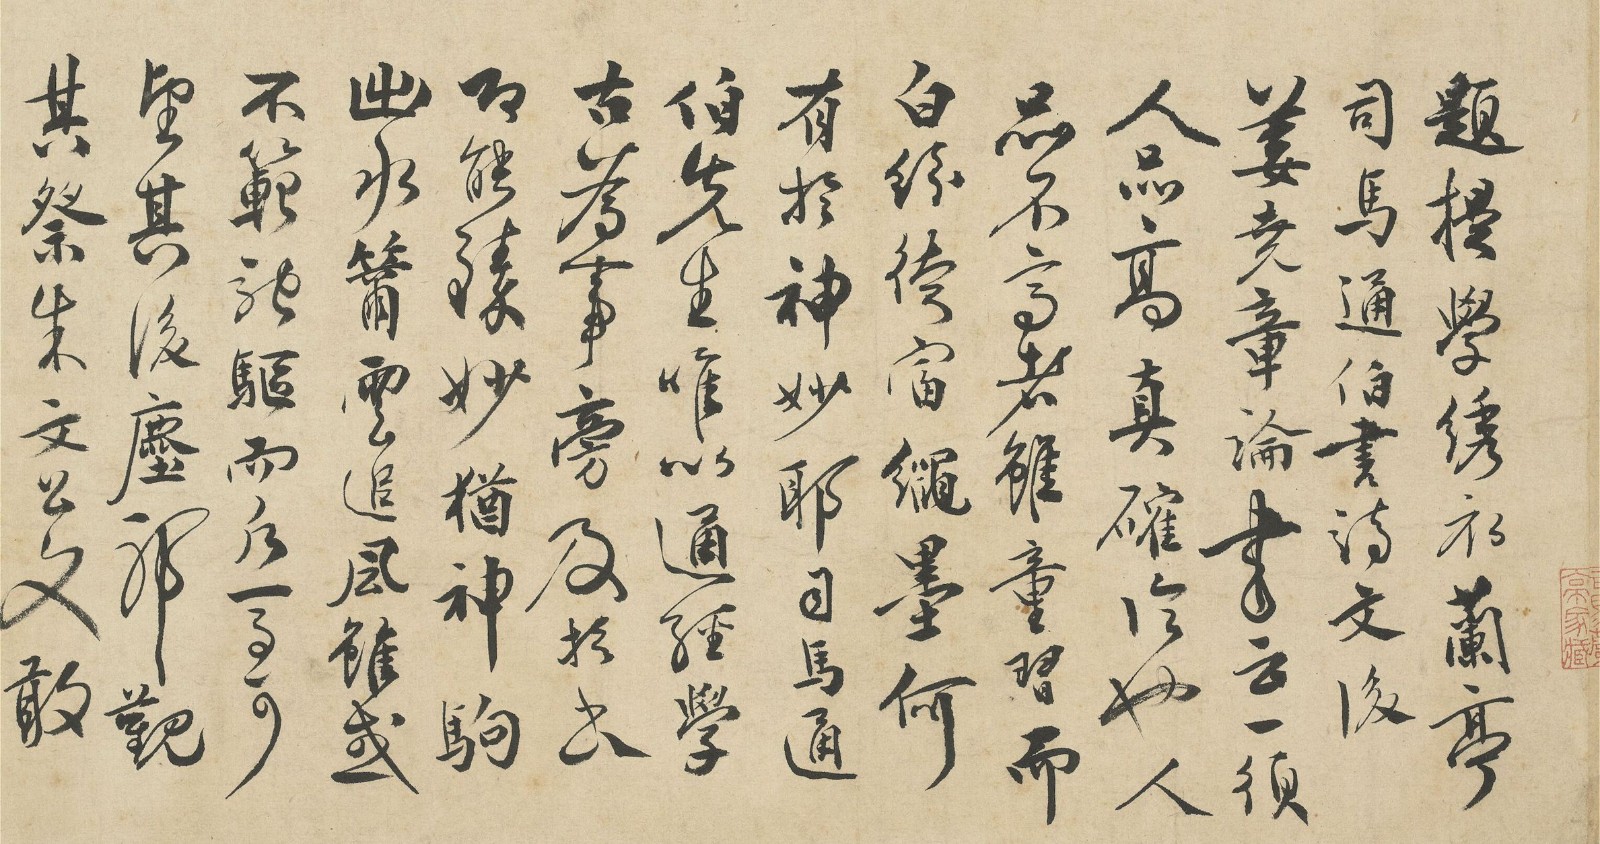 題模學綉衣蘭亭
司馬通伯書詩文後
姜堯章論書云一須
人品高真確論也人
品不高者雖童習而
白紛徒窘繩墨何
有於神妙耶司馬通
伯先生唯以通經學
古為事旁及於書
即能臻妙猶神駒
出水籋雲追風雖或
不範馳驅而久一馬可
望其後塵耶觀
其祭朱文公文敢